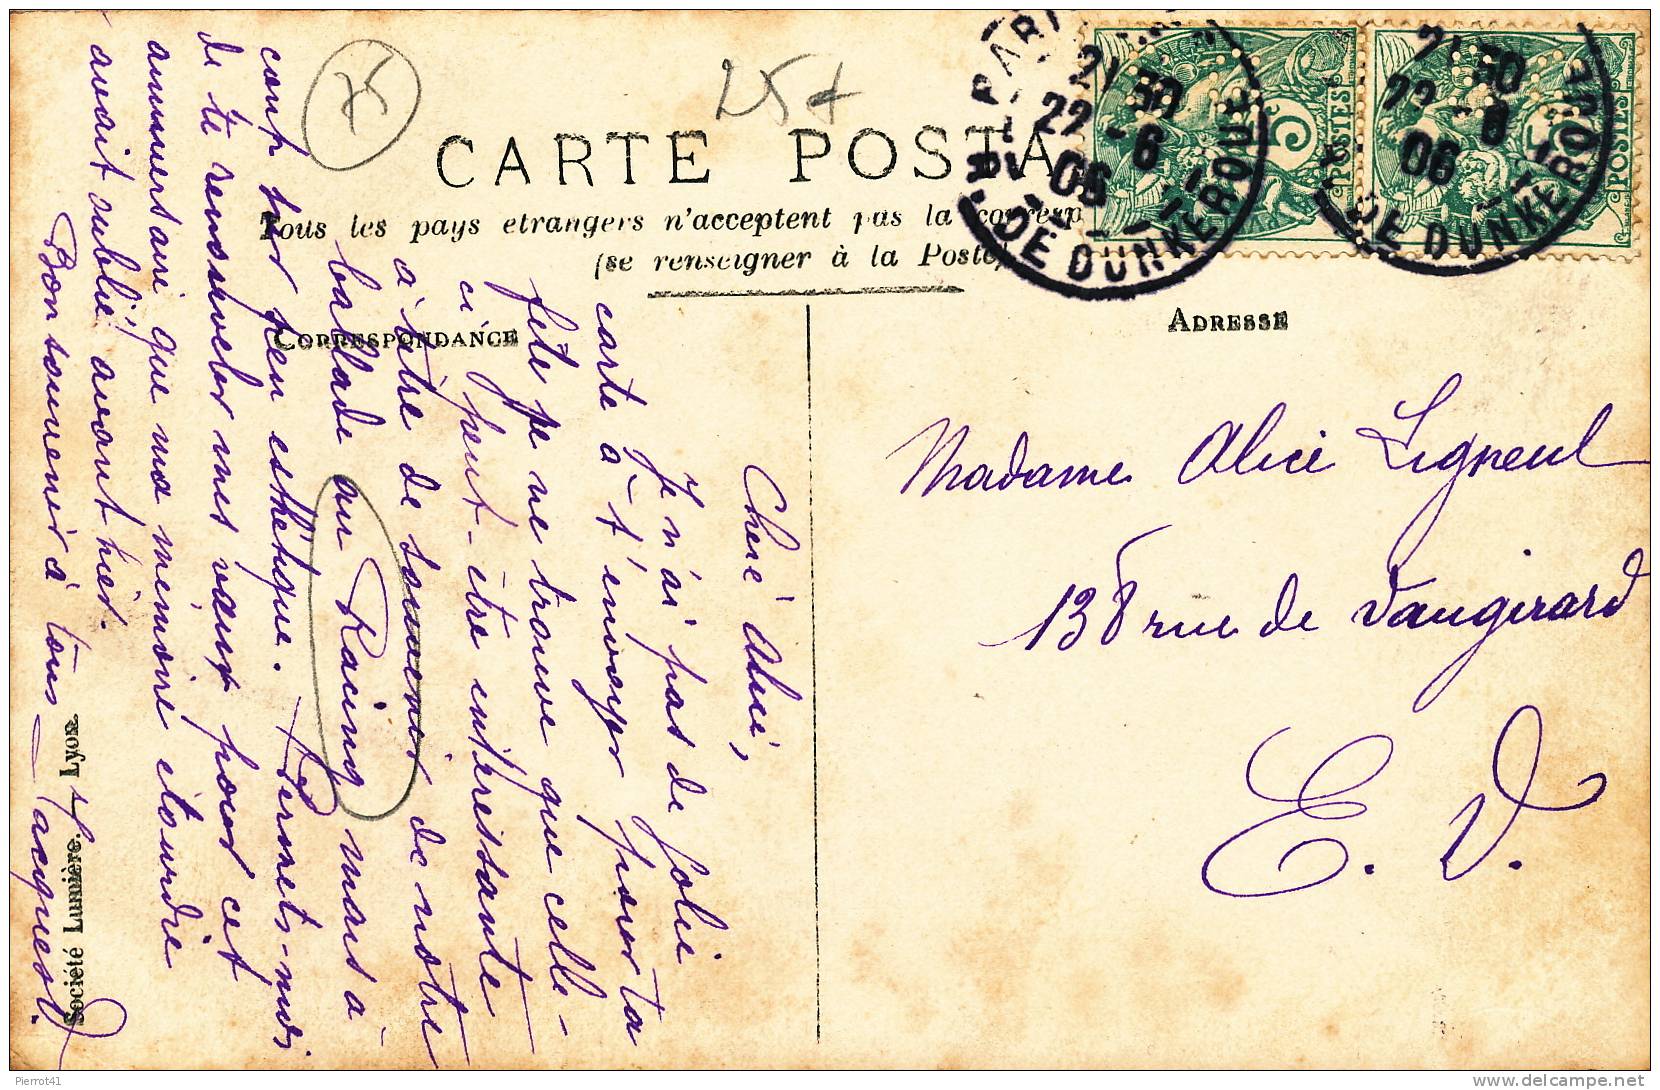 75
25 f
CARTE POSTA
Tous les pays etrangers n'acceptent pas la corresp
(se renseigner à la Poste)
CORRESPONDANCE
ADRESSE
Cheré Alice,
Je n'ai pas de jolie
carte à t'envoyer pour ta
fête je ne trouve que celle-
ci peut-être intéressante
à titre de souvenir de notre
ballade au Racing mais à
coup sur peu esthétique. Permets-moi
de te renouveler mes vœux pour cet
anniversaire que ma mémoire étourdie
avait oublié avant hier.
Bon souvenir à tous
Jacques
Société Lumière. Lyon.
Madame Alice Ligneul
138 rue de Vaugirard
E. V.
PARIS
21 30
22 - 6
06
R. DE DUNKERQUE
5
POSTES
21 30
22 - 6
06
DE DUNKERQUE
5
POSTES
Pierrot41
www.delcampe.net